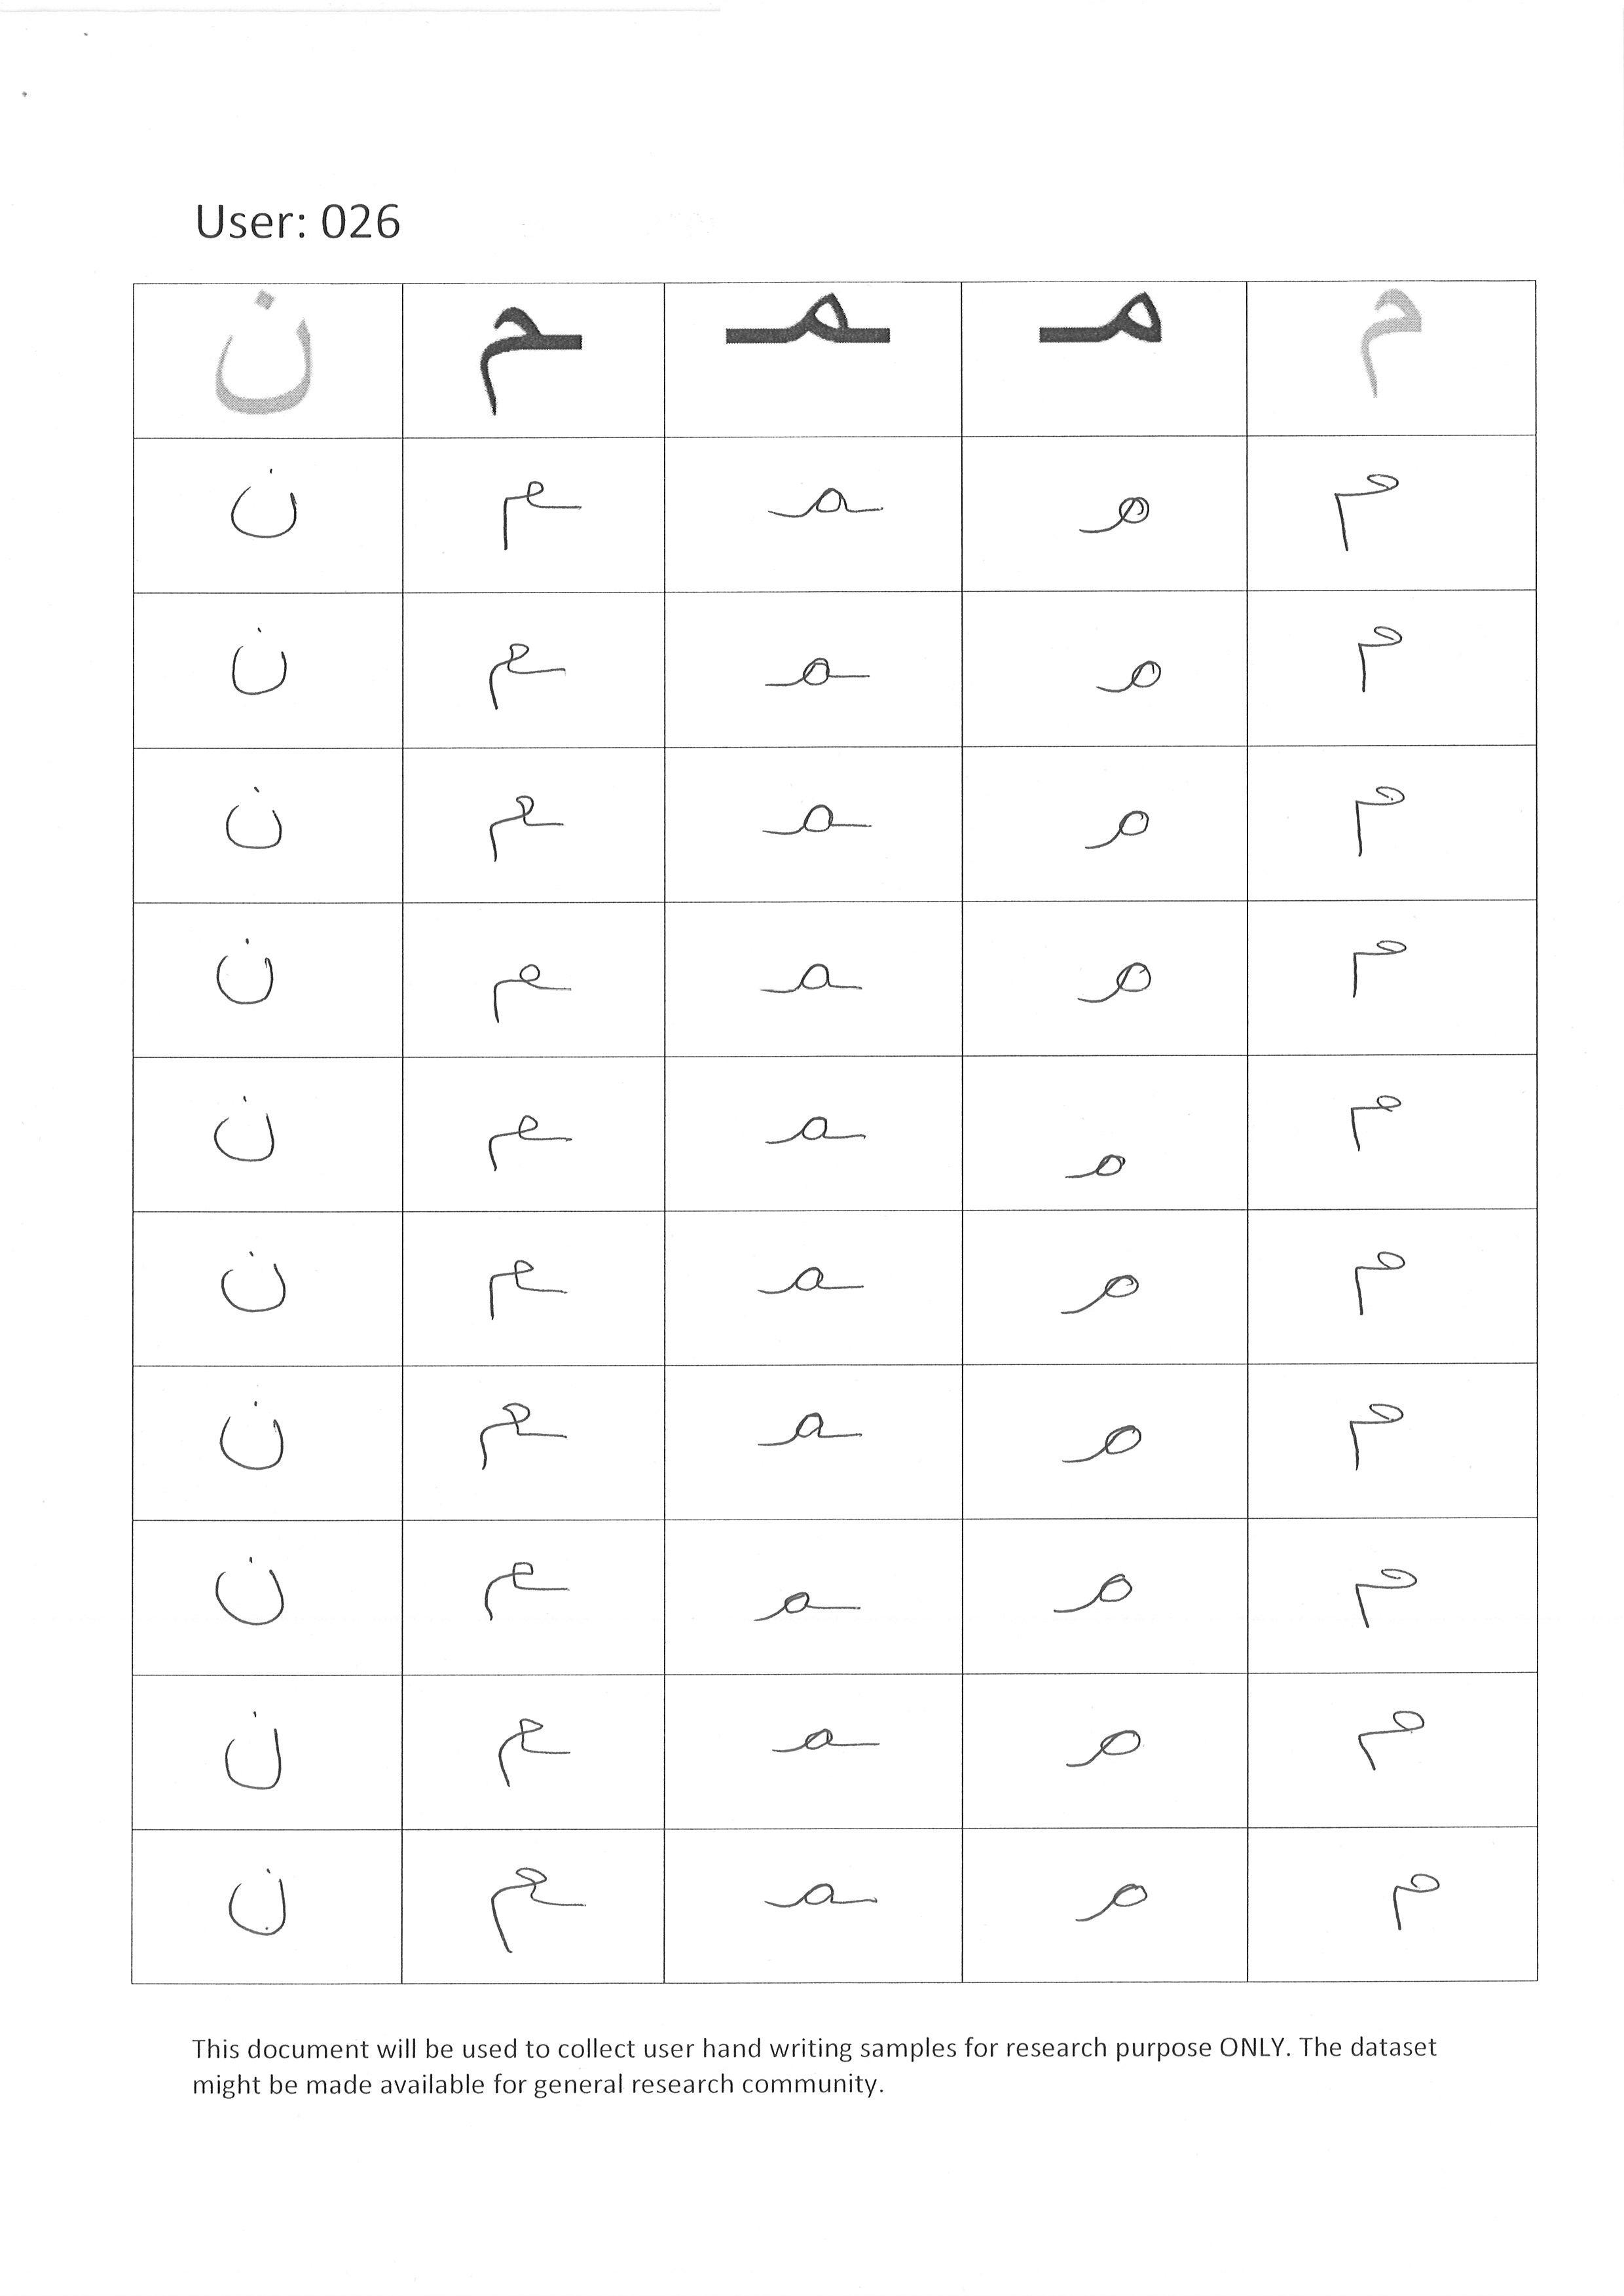 User: 026
م مـ ـمـ ـم ن
م مـ ـمـ ـم ن
م مـ ـمـ ـم ن
م مـ ـمـ ـم ن
م مـ ـمـ ـم ن
م مـ ـمـ ـم ن
م مـ ـمـ ـم ن
م مـ ـمـ ـم ن
م مـ ـمـ ـم ن
م مـ ـمـ ـم ن
م مـ ـمـ ـم ن
This document will be used to collect user hand writing samples for research purpose ONLY. The dataset
might be made available for general research community.